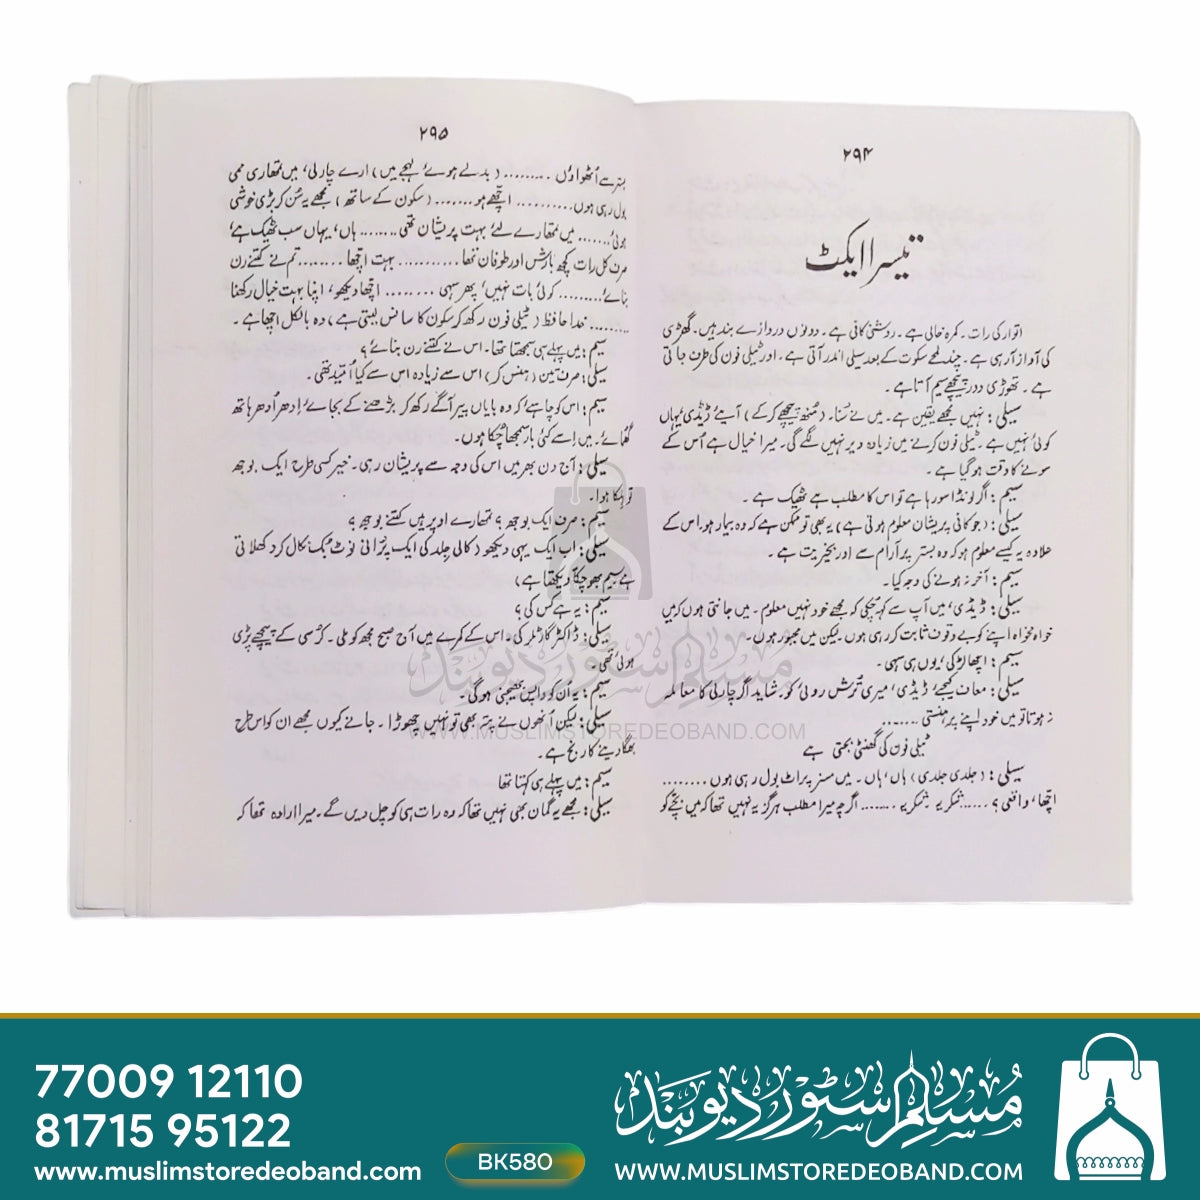 ۲۹۴
تیسرا ایکٹ
اتوار کی رات۔ کمرہ خالی ہے۔ روشنی کافی ہے۔ دونوں دروازے بند ہیں۔ گھڑی
کی آواز آرہی ہے۔ چند لمحے سکوت کے بعد سیلی اندر آتی ہے۔ اور ٹیلی فون کی طرف جاتی
ہے۔ تھوڑی دور پیچھے سیم آتا ہے۔
سیلی: نہیں مجھے یقین ہے۔ میں نے سُنا۔ (مُنھ پیچھے کرکے) آیئے ڈیڈی یہاں
کوئی نہیں ہے۔ ٹیلی فون کرنے میں زیادہ دیر نہیں لگے گی۔ میرا خیال ہے اُس کے
سونے کا وقت ہو گیا ہے۔
سیم: اگر لونڈا سو رہا ہے تو اس کا مطلب ہے ٹھیک ہے۔
سیلی: (جو کافی پریشان معلوم ہوتی ہے) یہ بھی تو ممکن ہے کہ وہ بیمار ہو، اس کے
علاوہ یہ کیسے معلوم ہو کہ وہ بستر پر آرام سے اور بخیریت ہے۔
سیم: آخر نہ ہونے کی وجہ کیا۔
سیلی: ڈیڈی، میں آپ سے کہہ چکی کہ مجھے خود نہیں معلوم۔ میں جانتی ہوں کہ میں
خواہ مخواہ اپنے کو بے وقوف ثابت کر رہی ہوں۔ لیکن میں مجبور ہوں۔
سیم: اچھا لڑکی، یوں ہی سہی۔
سیلی: معاف کیجیے ڈیڈی، میری تُرش روئی کو۔ شاید اگر چارلی کا معاملہ
نہ ہوتا تو میں خود اپنے پر ہنستی ......
ٹیلی فون کی گھنٹی بجتی ہے
سیلی: (جلدی جلدی) ہاں، ہاں۔ میں مسز پراٹ بول رہی ہوں ........
اچھا، واقعی؟ ..... شکریہ شکریہ ....... اگرچہ میرا مطلب ہرگز یہ نہیں تھا کہ میں بچّے کو
۲۹۵
بستر سے اُٹھواؤں ......... (بدلے ہوئے لہجے میں) ارے چارلی، میں تمھاری ممی
بول رہی ہوں .......... اچھے ہو ....... (سکون کے ساتھ) مجھے یہ سُن کر بڑی خوشی
ہوئی ....... میں تمھارے لیے بہت پریشان تھی ........ ہاں، یہاں سب ٹھیک ہے
صرف کل رات کچھ بارش اور طوفان تھا ........... بہت اچھا ........ تم نے کتنے رن
بنائے ......... کوئی بات نہیں، پھر سہی ........ اچھا دیکھو، اپنا بہت خیال رکھنا
........ خدا حافظ (ٹیلی فون رکھ کر سکون کا سانس لیتی ہے) وہ بالکل اچھا ہے۔
سیم: میں پہلے ہی سمجھتا تھا۔ اس نے کتنے رن بنائے؟
سیلی: صرف تین (ہنس کر) اس سے زیادہ اس سے کیا اُمید تھی۔
سیم: اس کو چاہئے کہ وہ بایاں پیر آگے رکھ کر بڑھنے کے بجائے اِدھر اُدھر ہاتھ
گھمائے۔ میں اِسے کئی بار سمجھا چُکا ہوں۔
سیلی: آج دن بھر میں اس کی وجہ سے پریشان رہی۔ خیر کسی طرح ایک بوجھ
تو ہلکا ہوا۔
سیم: صرف ایک بوجھ؟ تمھارے اوپر ہیں کتنے بوجھ؟
سیلی: اب ایک یہی دیکھو (کالی جِلد کی ایک پُرانی نوٹ بُک نکال کر دکھلاتی
ہے سیم بھوچکّا دیکھتا ہے)
سیم: یہ ہے کس کی؟
سیلی: ڈاکٹر گارٹلر کی۔ اس کے کمرے میں آج صبح مجھ کو ملی۔ کُرسی کے پیچھے پڑی
ہوئی تھی۔
سیم: یہ اُن کو واپس بھیجنی ہوگی۔
سیلی: لیکن اُنھوں نے پتہ بھی تو نہیں چھوڑا۔ جانے کیوں مجھے ان کو اس طرح
بھگا دینے کا رنج ہے۔
سیم: میں پہلے ہی کہتا تھا
سیلی: مجھے یہ گمان بھی نہیں تھا کہ وہ رات ہی کو چل دیں گے۔ میرا ارادہ تھا کہ
مسلم سٹور دیوبند
WWW.MUSLIMSTOREDEOBAND.COM
77009 12110
81715 95122
www.muslimstoredeoband.com
BK580
مسلم سٹور دیوبند
WWW.MUSLIMSTOREDEOBAND.COM